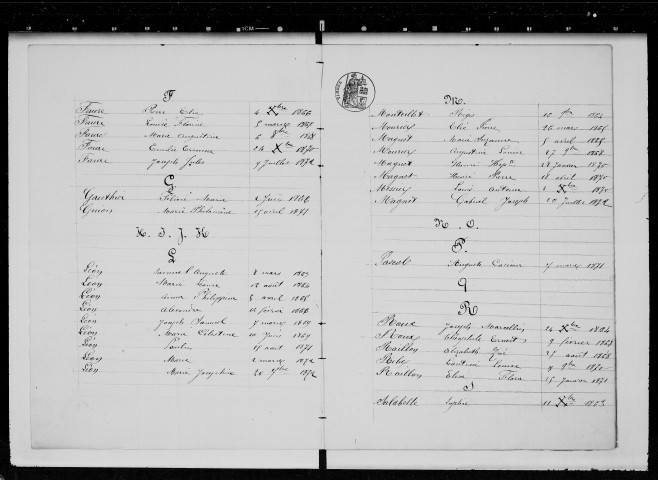 F
Faure Pierre Elie 4 Xbre 1866
Faure Louise Florine 8 mars 1867
Faure Marie Augustine 6 8bre 1868
Faure Emilie Ermine 24 Xbre 1870
Faure Joseph Jules 9 Juillet 1872
G
Gauthier Marie 2 Juin 1866
Guion Marie Philomène 17 avril 1871
H. I. J. K
L
Léon Auguste 8 mars 1863
Léon Marie Louise 12 août 1864
Léon Anne Philippine 5 avril 1865
Léon Alexandre 12 février 1866
Léon Joseph Samuel 7 mars 1869
Léon Marie Célestine 10 Juin 1869
Léon Paulin 15 août 1871
Léon Marie 2 mars 1872
Léon Marie Joséphine 20 9bre 1872
M.
Monteillet 1864
Mourier Elie Pierre 26 mars 1865
Magnet Marie Suzanne 5 avril 1865
Mourier Augustine Louise 27 9bre 1868
Magnet Henri 28 Janvier 1870
Magnet Henri Pierre 18 avril 1870
Louis Antoine 1 Xbre 1870
Magnet Gabriel Joseph 20 Juillet 1872
N. O.
P.
Pascal Auguste 7 mars 1871
Q
R
Roux Joseph Marcellin 24 Xbre 1864
Roux Théophile Ernest 9 février 1868
Raillon Elizabeth Zoé 27 août 1868
Louise 4 9bre 1870
Raillon Elisa Flora 25 Janvier 1871
S
Salabelle Sophie 11 Xbre 1863